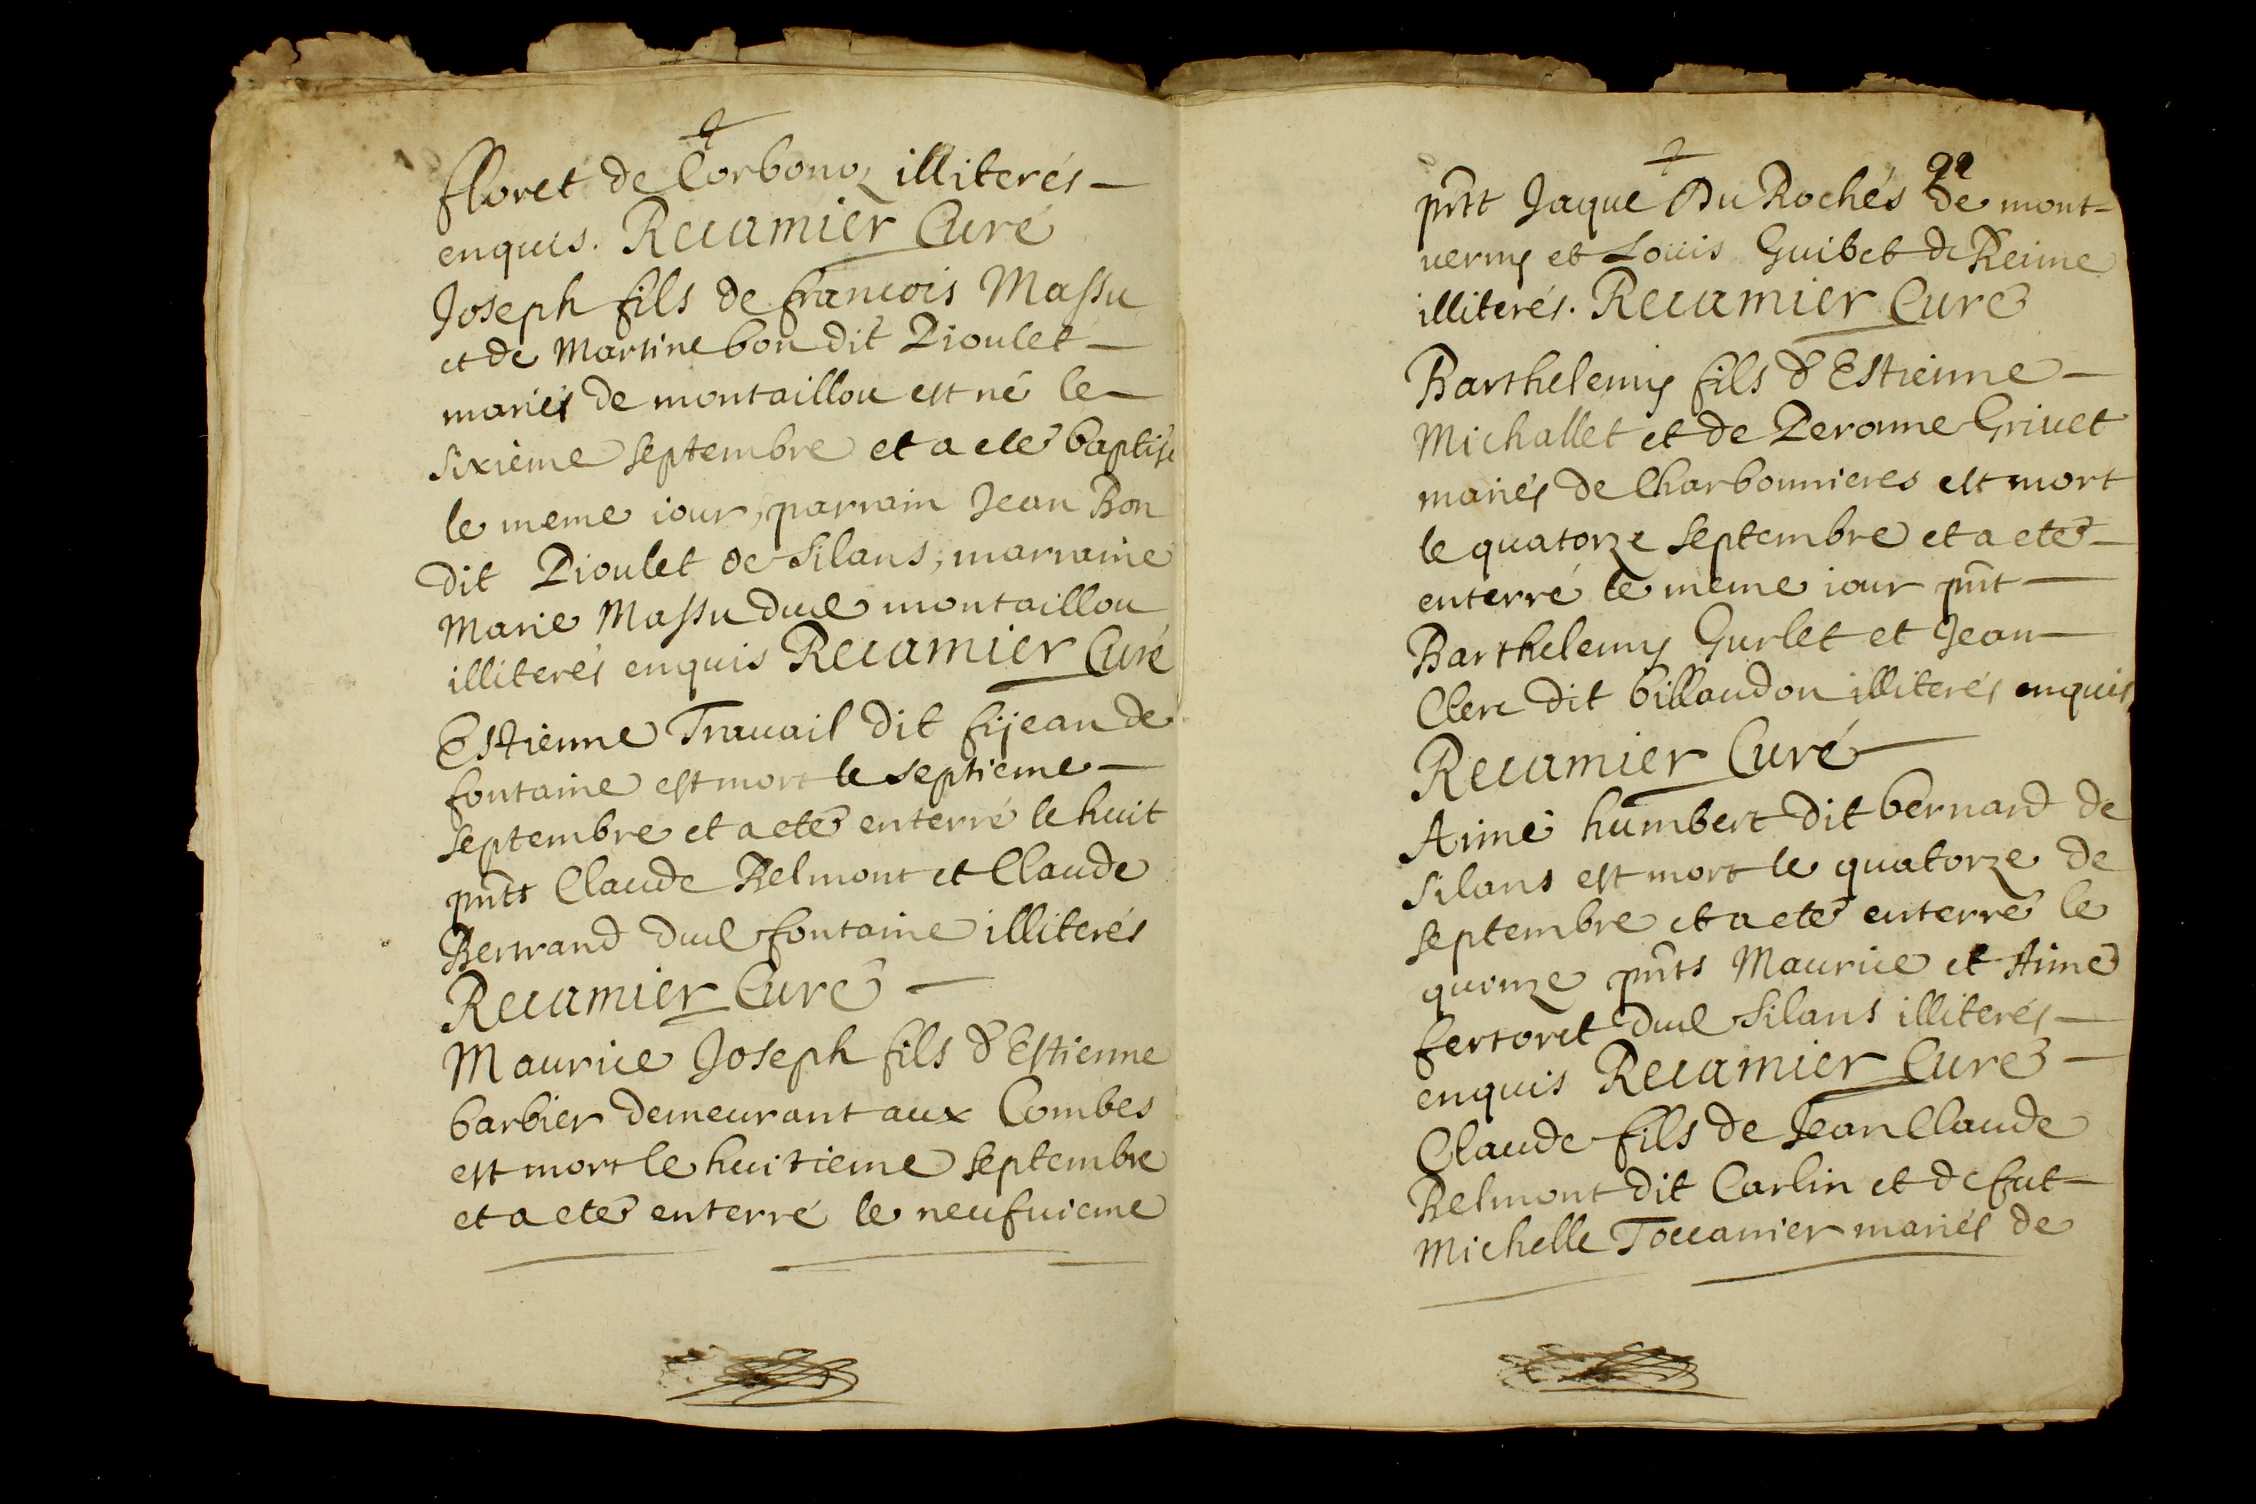 floret de Corbonoz illiterés
enquis. Recamier Curé
Joseph fils de francois Massu
et de Martine bon dit Pioulet
mariés de montaillou est né le
sixième septembre et a eté baptisé
le meme iour, parrain Jean Bon
dit Pioulet de Silans, marraine
Marie Massu dud montaillou
illiterés enquis Recamier Curé
Estienne Travail dit fijean de
fontaine est mort le septieme
septembre et a eté enterré le huit
pnts Claude Belmont et Claude
Bertrand dud fontaine illiterés
Recamier Curé
Maurice Joseph fils d'Estienne
barbier demeurant aux Combes
est mort le huitieme septembre
et a eté enterré le neufuieme
22
pntt Jaque Du Rochés de mont-
verny et Louis Guibet de Reime
illiterés. Recamier Curé
Barthelemy fils d'Estienne
Michallet et de Peronne Grivet
mariés de Charbonnieres est mort
le quatorze septembre et a eté
enterré le meme iour pnt
Barthelemy Gurlet et Jean
Clerc dit billaudon illiterés enquis
Recamier Curé
Aimé humbert dit bernard de
Silans est mort le quatorze de
septembre et a eté enterré le
quinze pnts Maurice et Aimé
fertoret dud Silans illiterés
enquis Recamier Curé
Claude fils de Jean Claude
Belmont dit Carlin et de fut
Michelle Toccanier mariés de